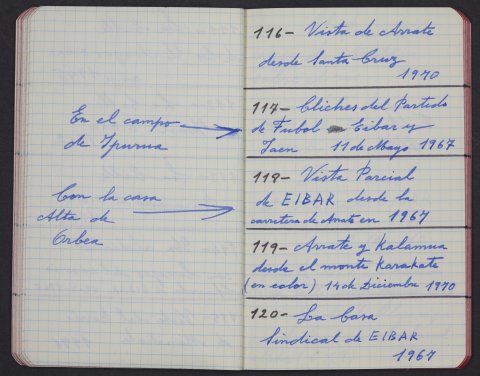 En el campo
de Ipurua
Con la casa
Alta de
Orbea
116- Vista de Arrate
desde Santa-Cruz
1970
117- Cliches del Partido
de Fubol Eibar y
Jaen 11 de Mayo 1967
118- Vista Parcial
de EIBAR desde la
carretera de Arrate en 1967
119- Arrate y Kalamua
desde el monte Karakate
(en color) 14 de Diciembre 1970
120- La Casa
Sindical de EIBAR
1967